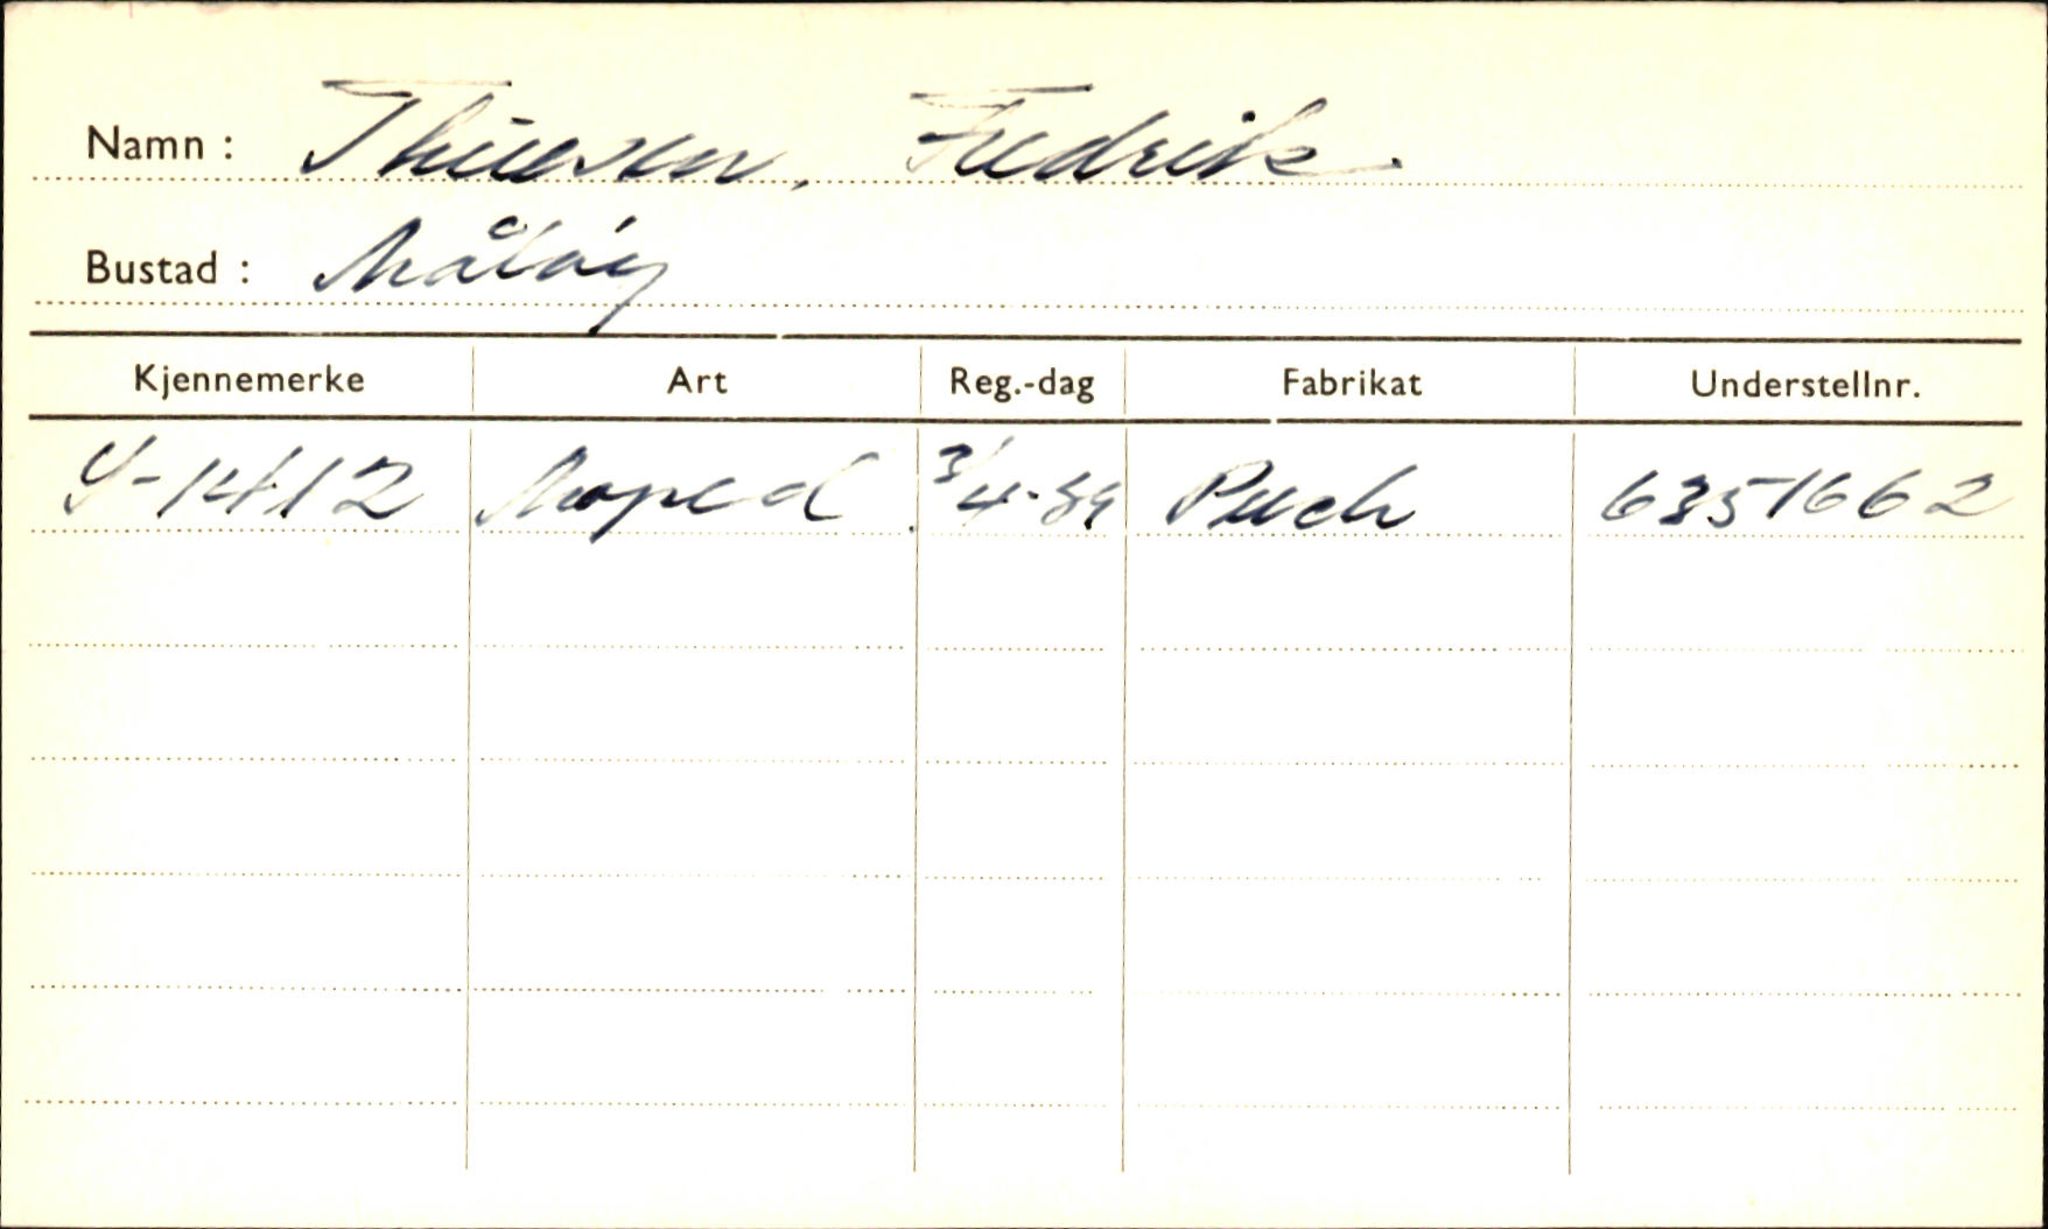 Namn : Thuesen, Fredrik
Bustad : Måløy
Kjennemerke Art Reg.-dag Fabrikat Understellnr.
Y-1412 Moped 3/4-84 Puch 6351662